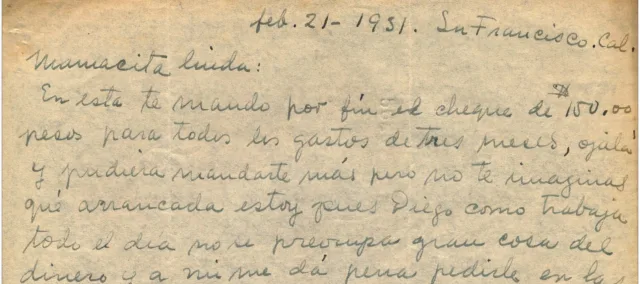 feb. 21 - 1931. Sn Francisco. Cal.
Mamacita linda:
En esta te mando por fin el cheque de 150.00
pesos para todos los gastos de tres meses, ojala
y pudiera mandarte más pero no te imaginas
qué arrancada estoy pues Diego como trabaja
todo el dia no se preocupa gran cosa del
dinero y a mi me dá pena pedirle en las